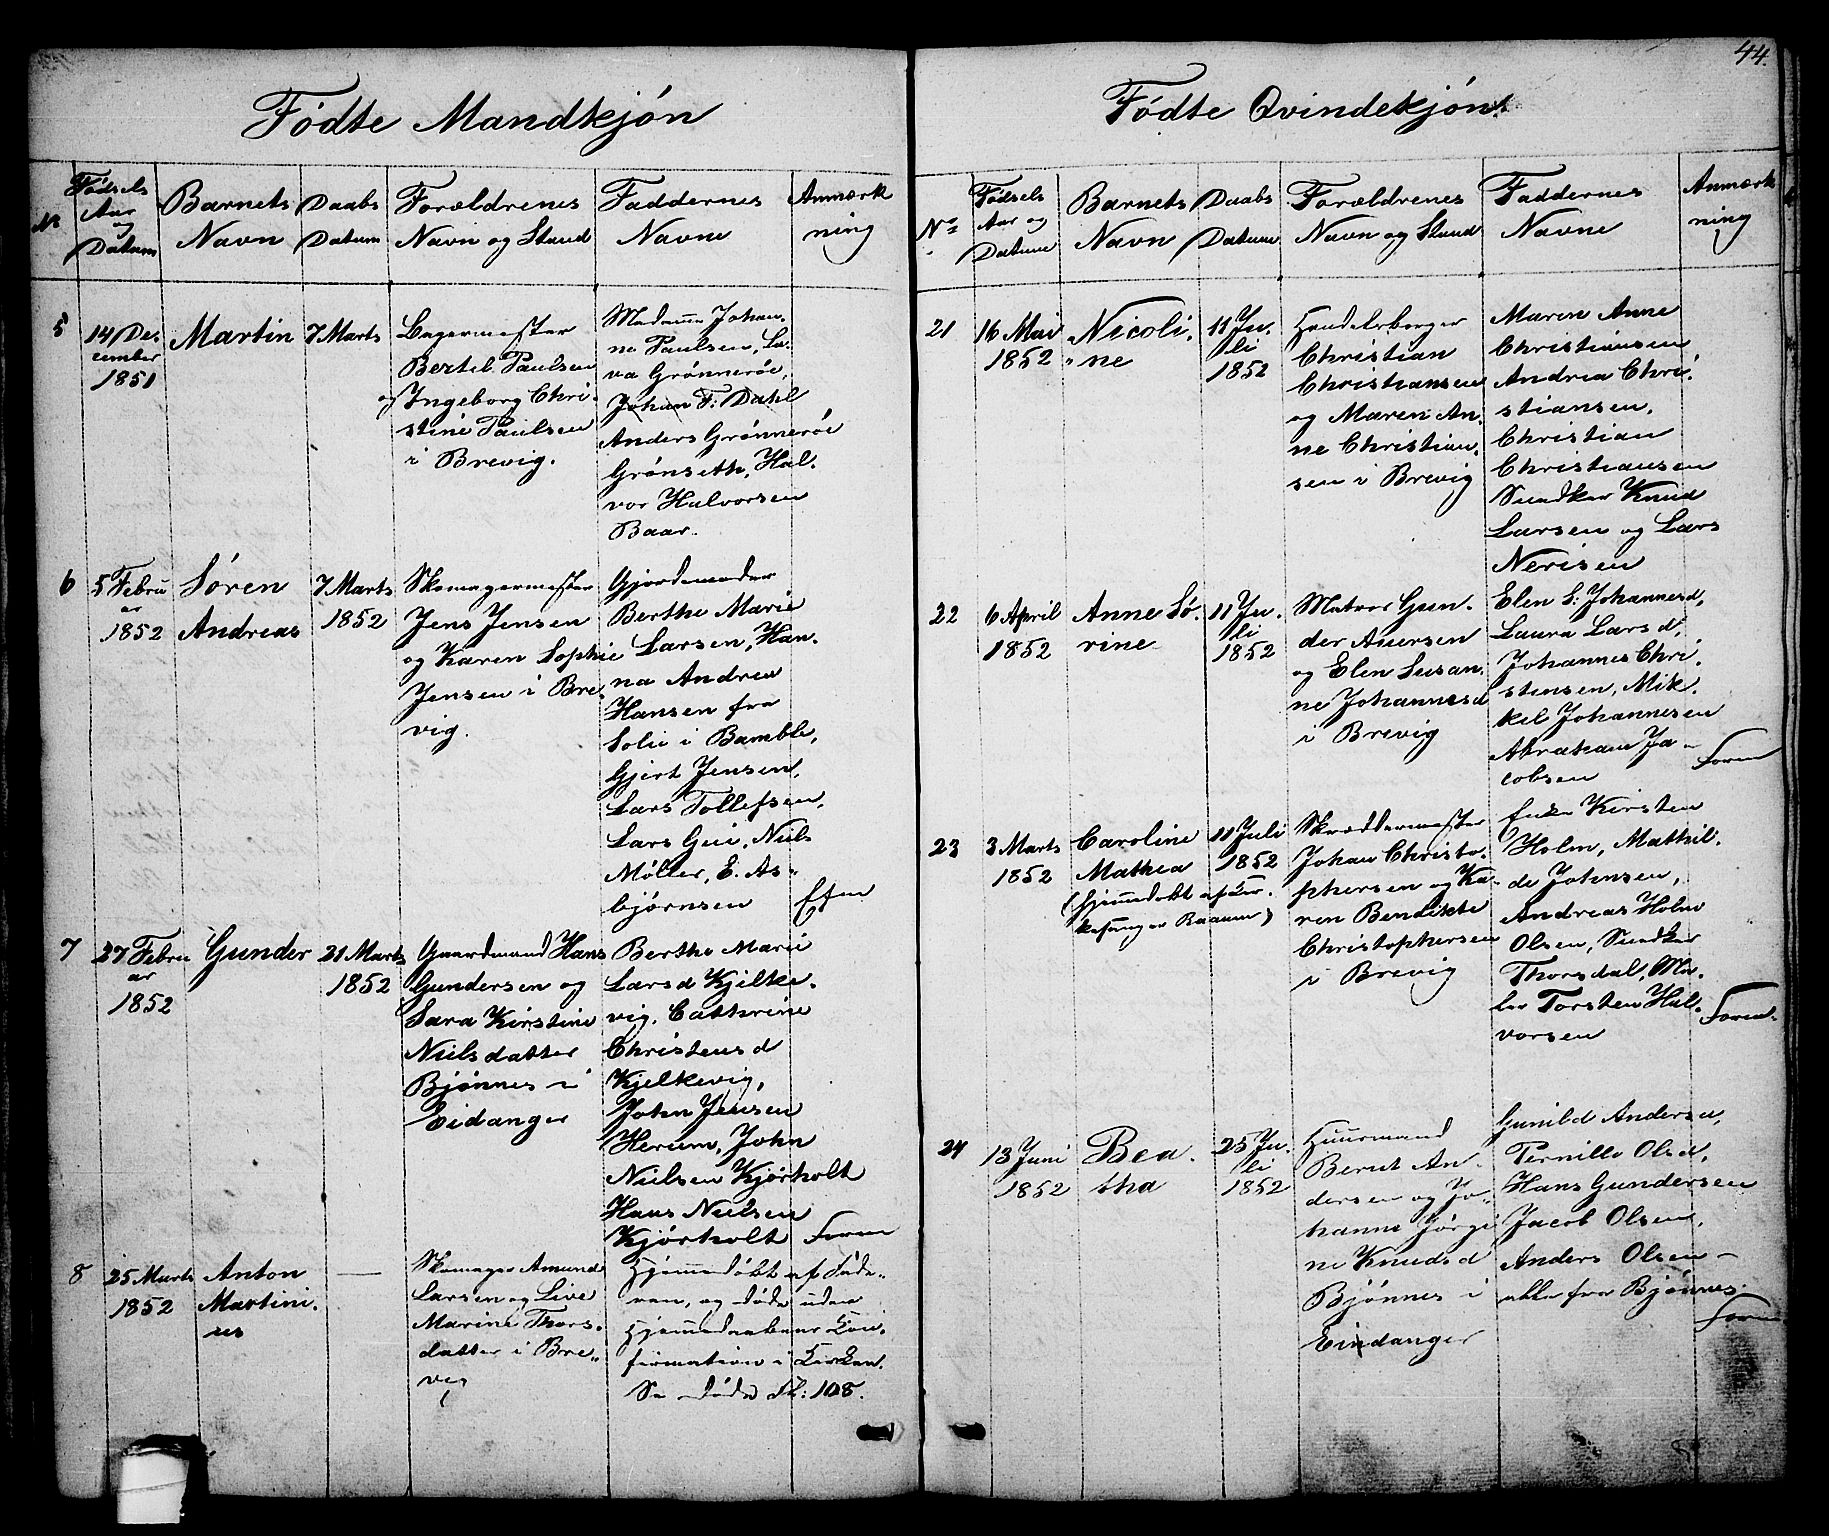 44.
Fødte Mandkjøn
No
Fødsels
Aar
og
Datum
Barnets
Navn
Daabs
Datum
Forældrenes
Navn og Stand
Faddernes
Navne
Anmærk
ning
5
14 De
cember
1851
Martin
7 Marts
Bagermester
Bertel Paulsen
og Ingeborg Chri-
stine Paulsen
i Brevig.
Madame Johan-
ne Paulsen, La-
va Grønnerøe,
Johan F: Dahl
Anders Grønnerøe
Grønseth, Hal-
vor Halvorsen
Baar.
6
5 Febru
ar
1852
Søren
Andreas
7 Marts
1852
Skomagermester
Jens Jensen
og Karen Sophie
Jensen i Bre
vig.
Gjordemoder
Berthe Marie
Larsen, Han-
na Andrea
Hansen fra
Solie i Bamble,
Gjert Jensen,
Lars Tollefsen,
Lars Gui, Niels
Møller, E. As-
bjørnsen
7
27 Febru
ar
1852
Gunder
21 Marts
1852
Gaardmand Hans
Gundersen og
Sara Kirstine
Nielsdatter
Bjønnes i
Eidanger
Berthe Marie
Larsd Kjelke-
vig, Cathrine
Christensd
Kjelkevig,
John Jensen
Herum, John
Nielsen Kjørholt
Hans Nielsen
Kjørholt
Foren
8
25 Marts
1852
Anton
Martini-
us
—
Skomager Amund
Larsen og Live
Marine Thors-
datter i Bre-
vig
Hjemmedøbt af Fade-
ren, og døde uden
Hjemmedaabens Con-
firmation i Kirken.
Se døde Fl: 108.
Fødte Qvindekjøn.
No
Fødsels
Aar og
Datum
Barnets
Navn
Daabs
Datum
Forældrenes
Navn og Stand
Faddernes
Navne
Anmærk
ning
21
16 Mai
1852
Nicoli-
ne
11 Ju-
li
1852
Handelsborger
Christian
Christiansen
og Maren An-
ne Christian-
sen i Brevig
Maren Anne
Christiansen
Andrea Chri-
stiansen,
Christian
Christiansen
Snedker Knud
Larsen og Lars
Nerisen
22
6 April
1852
Anne Sø-
rine
11 Ju-
li
1852
Matros Gun-
der Aversen
og Elen Susan-
ne Johannesd
i Brevig
Elen S: Johannesd,
Laura Larsd,
Johannes Chri-
stensen, Mik-
kel Johannesen
Abraham Ja-
cobsen
Foren
23
3 Marts
1852
Caroline
Mathea
(Hjemmedøbt af Kir-
kesanger Baarum)
11 Juli
1852
Skreddermester
Johan Christo-
phersen og Ka-
ren Bendikte
Christophersen
i Brevig
Enke Kirsten
Holm, Mathil-
de Johnsen,
Andreas Holm
Olsen, Snedker
Thorsdal, Ma-
ler Torsten Hal-
vorsen
Foren.
24
13 Juni
1852
Bea-
tha
25 Ju-
li
1852
Huusmand
Bernt An-
dersen og Jo-
hanne Jørgi
ne Knudsd
Bjønnes i
Eindanger
Gunild Andersn,
Pernille Olsd,
Hans Gundersen
Jacob Olsen,
Anders Olsen—
alle fra Bjønnes.
Foren